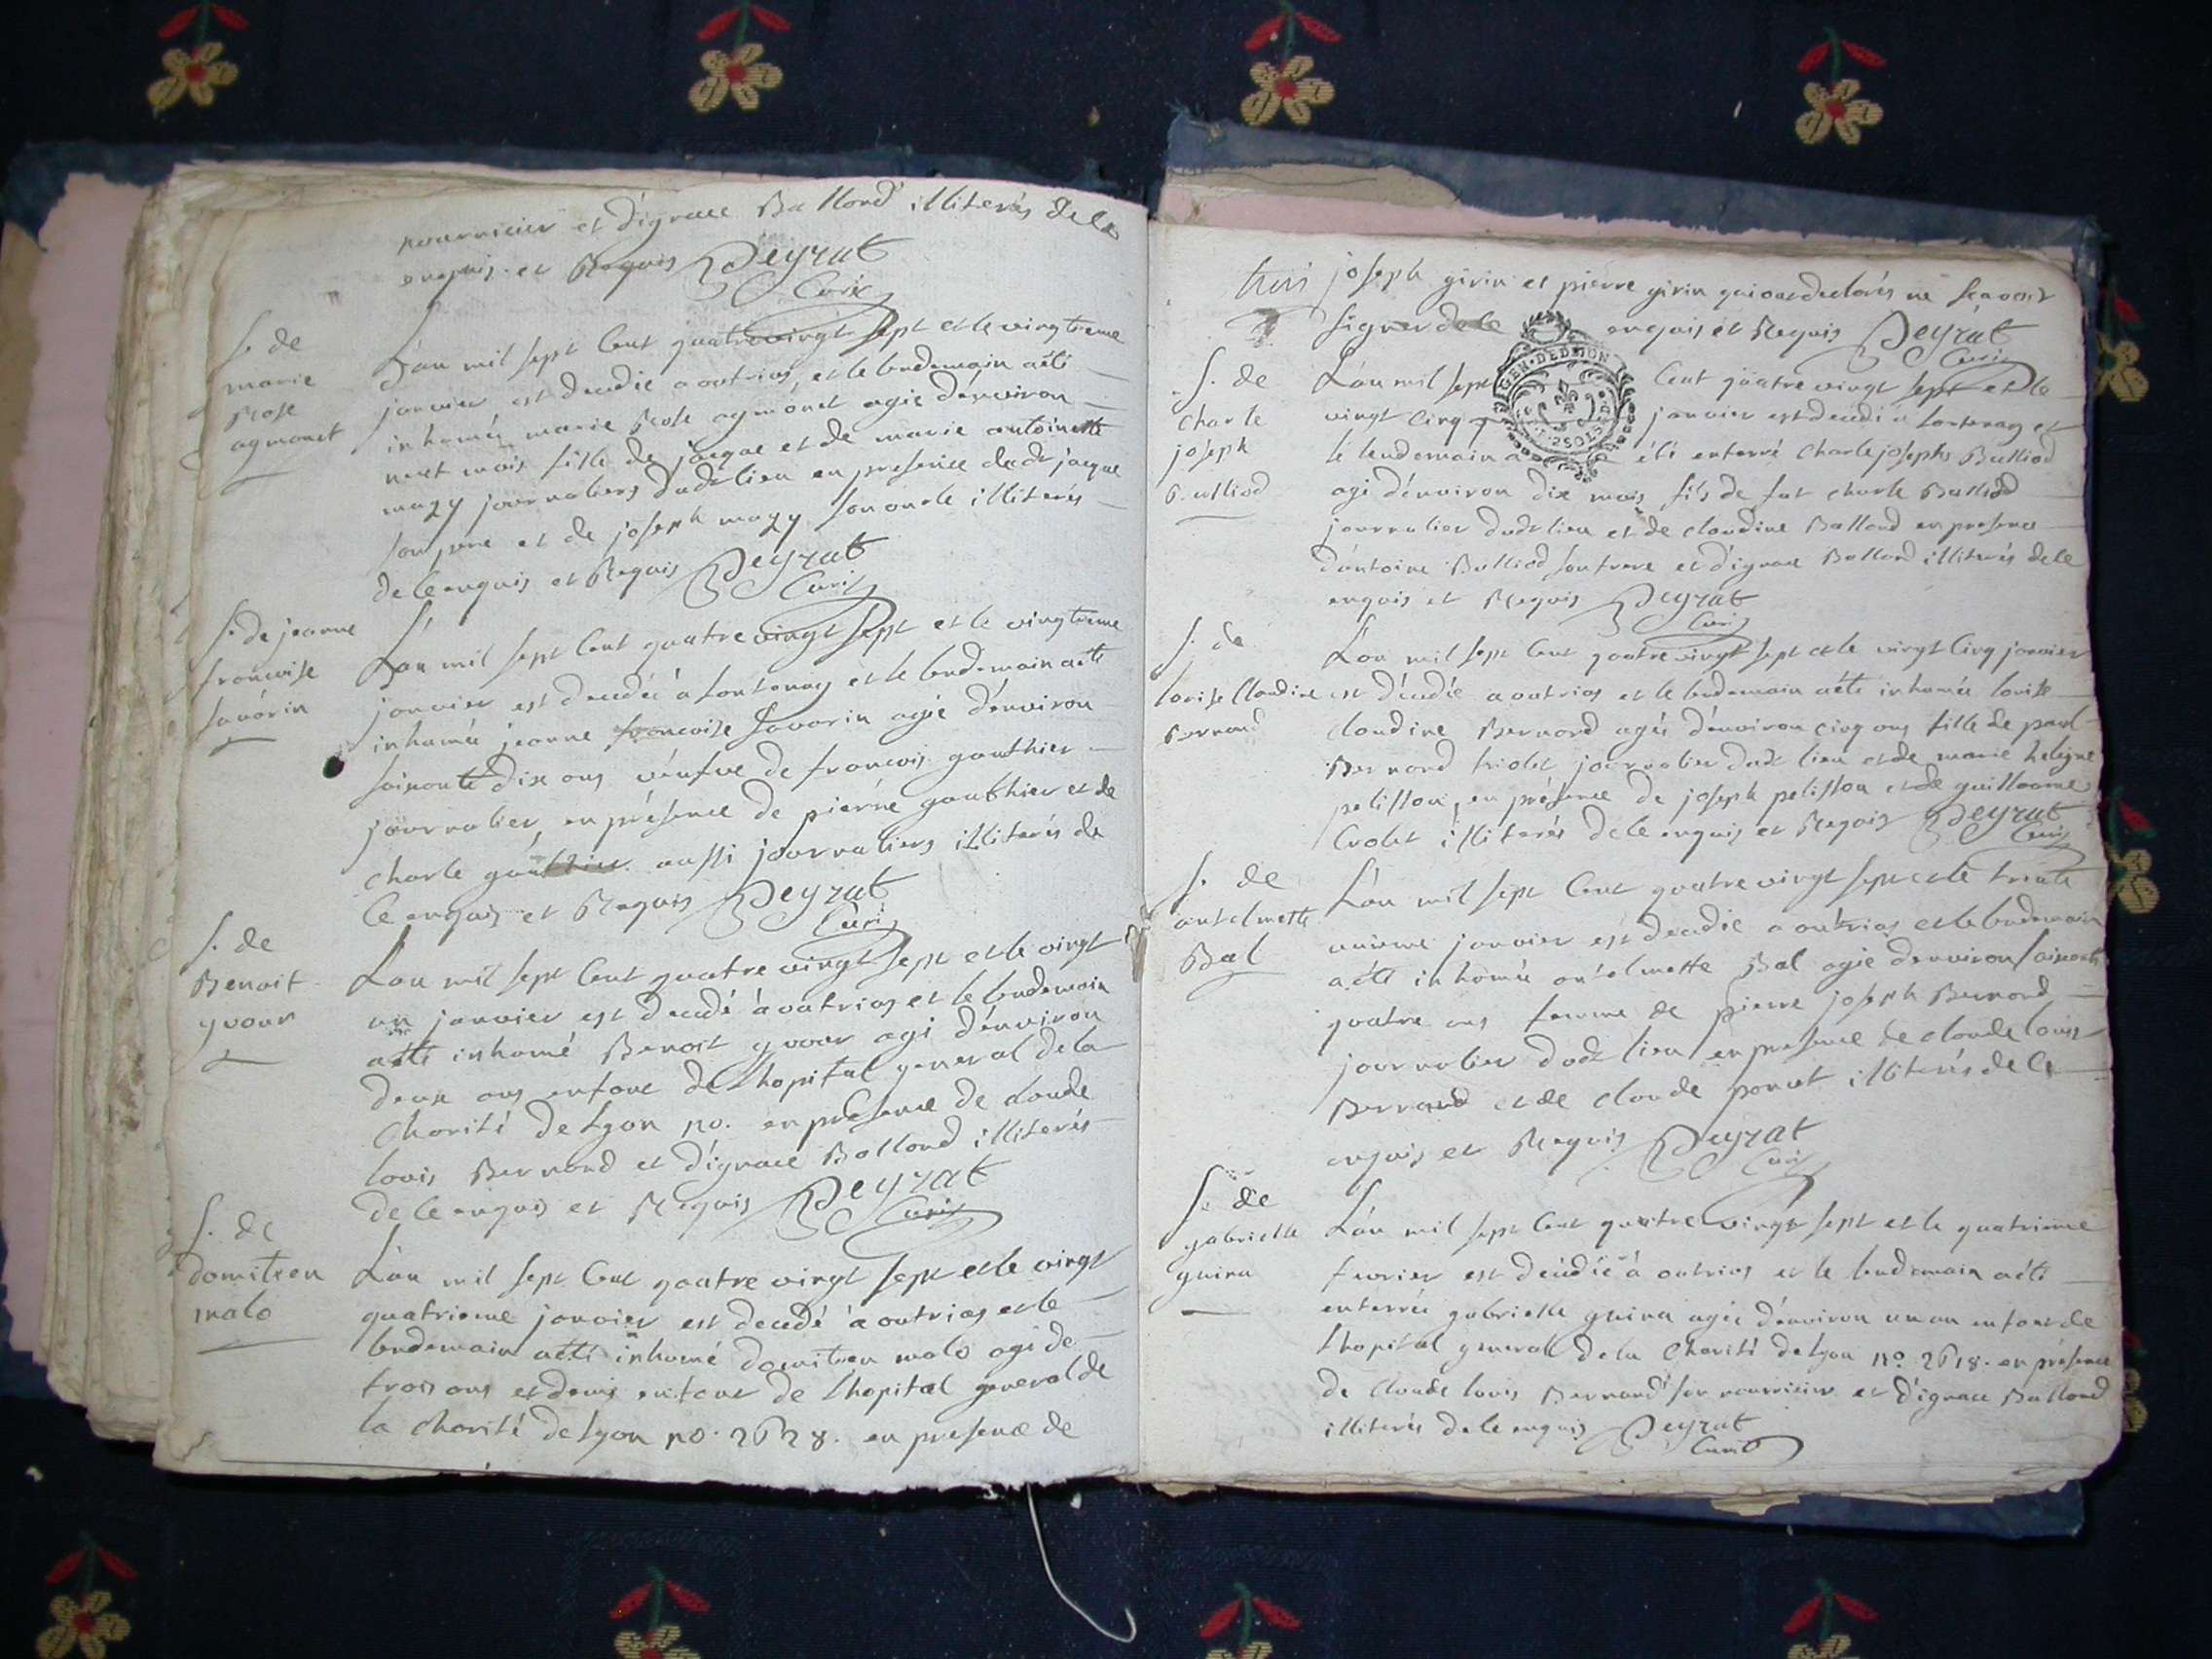 nourricier et d'ignace Ballond illiterés de ce
enquis et Requis Deyrat
Curé
S. de
marie
Rose
aymonet
L'an mil sept Cent quatrevingt sept et le vingtieme
janvier est decedée a outrias, et le lendemain a été
inhumée marie Rose aymonet agée d'environ
neuf mois fille de jacque et de marie antoinette
magy journaliers dudt lieu en presence dudt jacque
son pere et de joseph magy son oncle illiterés
de ce enquis et Requis Deyrat
Curé
S. de jeanne
francoise
savarin
L'an mil sept Cent quatre vingt sept et le vingtieme
janvier est decedée a lontenay et le lendemain a été
inhumée jeanne francoise savarin agée d'environ
soixante dix ans veufve de francois gauthier
journalier, en présence de pierre gauthier et de
charle gauthier aussi journaliers illiterés de
ce enquis et Requis Deyrat
Curé
S. de
Benoit
yvour
L'an mil sept Cent quatre vingt sept et le vingt
un janvier est decedé à outrias et le lendemain
a été inhumé Benoit yvour agé d'environ
deux ans enfant de Lhopital general de la
Charité de Lyon no. en presence de claude
louis Bernard et d'ignace Ballond illiterés
de ce enquis et Requis Deyrat
Curé
S. de
domitien
malo
L'an mil sept Cent quatre vingt sept et le vingt
quatrieme janvier est decedé à outrias et le
lendemain a été inhumé domitien malo agé de
trois ans et demi enfant de Lhopital general de
la Charité de Lyon no. 2628. en presence de
joseph girin et pierre girin qui ont declarés ne scavoir
signer de ce enquis et Requis Deyrat
Curé
S. de
charle
joseph
Bulliod
L'an mil sept Cent quatre vingt sept et le
vingt cinq janvier est decedé a lontenay et
le lendemain a été enterré Charle joseph Bulliod
agé d'environ dix mois fils de fut charle Bulliod
journalier dudt lieu et de claudine Ballond en presence
d'antoine Bulliod son frere et d'ignace Ballond illiterés de ce
enquis et Requis Deyrat
Curé
GEN. DE DIJON
S. de
louise Claudine
Bernard
L'an mil sept Cent quatre vingt sept et le vingt Cinq janvier
est décedée a outrias et le lendemain a été inhumée louise
claudine Bernard agée d'environ cinq ans fille de paul
Bernard triolet journalier dudt lieu et de marie heleine
pelisson, en présence de joseph pelisson et de guillaume
Crolet illiterés de ce enquis et Requis Deyrat
Curé
S. de
antelmette
Bal
L'an mil sept Cent quatre vingt sept et le trente
unieme janvier est decedée a outrias et le lendemain
a été inhumée antelmette Bal agée d'environ soixante
quatre ans femme de pierre joseph Bernard
journalier dudt lieu en presence de claude louis
Bernard et de claude poncet illiterés de ce
enquis et Requis Deyrat
Curé
S. de
gabrielle
guina
L'an mil sept Cent quatre vingt sept et le quatrieme
fevrier est décedée à outrias et le lendemain a été
enterrée gabrielle guina agée d'environ un an enfant de
Lhopital general de la Charité de Lyon no. 2618. en présence
de claude louis Bernard son nourricier et d'ignace Ballond
illiterés de ce enquis Deyrat
Curé